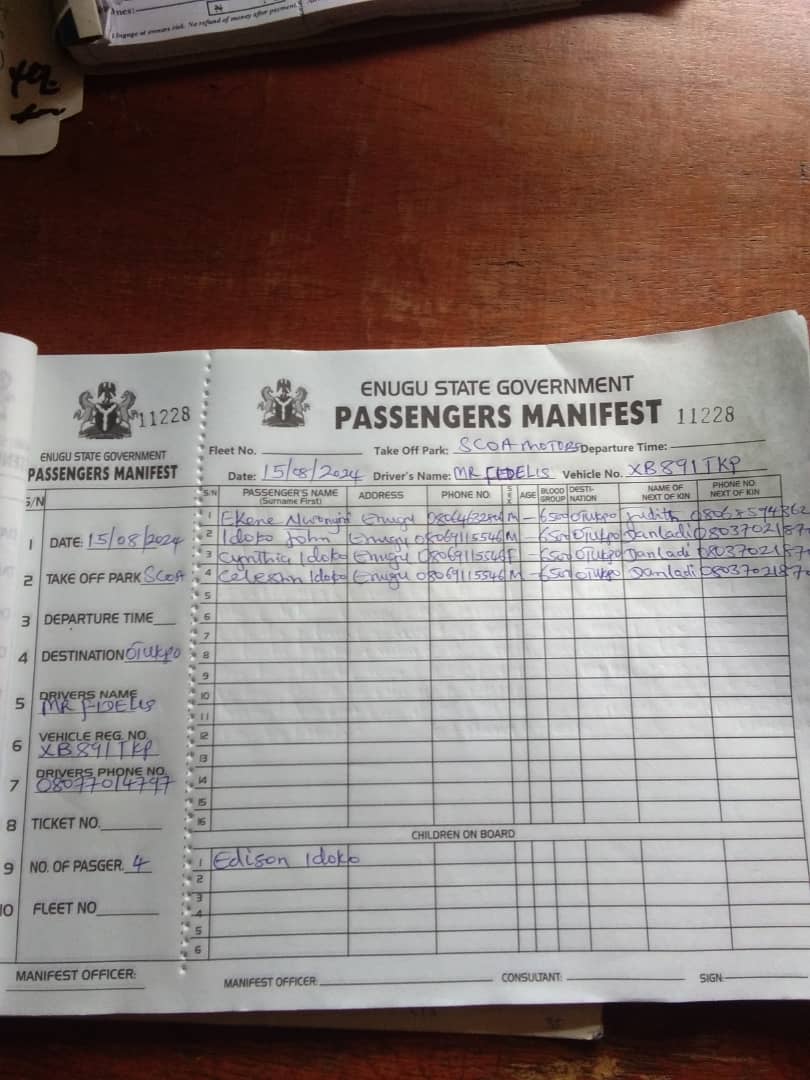 ines: N
Engage at owners risk. No refund of money after payment.
ENUGU STATE GOVERNMENT
PASSENGERS MANIFEST 11228
Fleet No. Take Off Park: SCOA MOTORS Departure Time:
Date: 15/08/2024 Driver's Name: MR FEDELIS Vehicle No. XB891TKP
S/N PASSENGER'S NAME (Surname First) ADDRESS PHONE NO. SEX AGE BLOOD GROUP DESTI-NATION NAME OF NEXT OF KIN PHONE NO. NEXT OF KIN
1 Ekene Enugu M - 6500 Otukpo Judith
2 Idoko John Enugu 08069115546 M - 6500 Otukpo Danladi 080370218
3 Cynthia Idoko Enugu 08069115546 F - 6500 Otukpo Danladi 080370218
4 Celestin Idoko Enugu 08069115546 M - 6500 Otukpo Danladi 080370218
5
6
7
8
9
10
11
12
13
14
15
16
CHILDREN ON BOARD
1 Edison Idoko
2
3
4
5
6
MANIFEST OFFICER: CONSULTANT: SIGN:
11228
ENUGU STATE GOVERNMENT
PASSENGERS MANIFEST
S/N
1 DATE: 15/08/2024
2 TAKE OFF PARK SCOA
3 DEPARTURE TIME
4 DESTINATION OTUKPO
5 DRIVERS NAME
MR FIDELIS
6 VEHICLE REG. NO.
XB891TKP
7 DRIVERS PHONE NO.
08077014797
8 TICKET NO.
9 NO. OF PASGER. 4
10 FLEET NO
MANIFEST OFFICER: